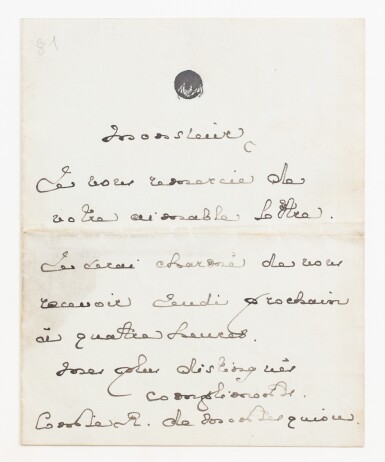 81
Monsieur,
Je vous remercie de
votre aimable lettre.
Je serai charmé de vous
recevoir Jeudi prochain
à quatre heures.
Mes plus distingués
compliments.
Comte R. de Montesquiou.